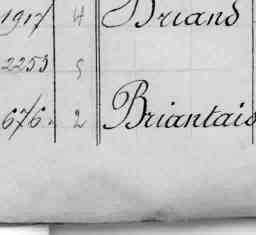 1917 4 Briand
2253 5
676. 2 Briantais